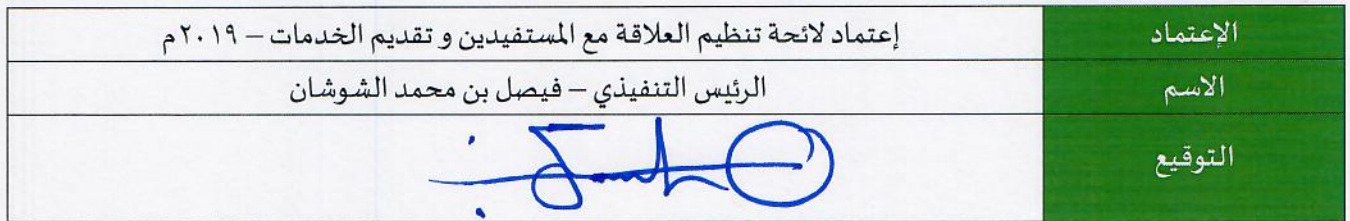 الإعتماد إعتماد لائحة تنظيم العلاقة مع المستفيدين و تقديم الخدمات – ٢٠١٩م
الاسم الرئيس التنفيذي – فيصل بن محمد الشوشان
التوقيع